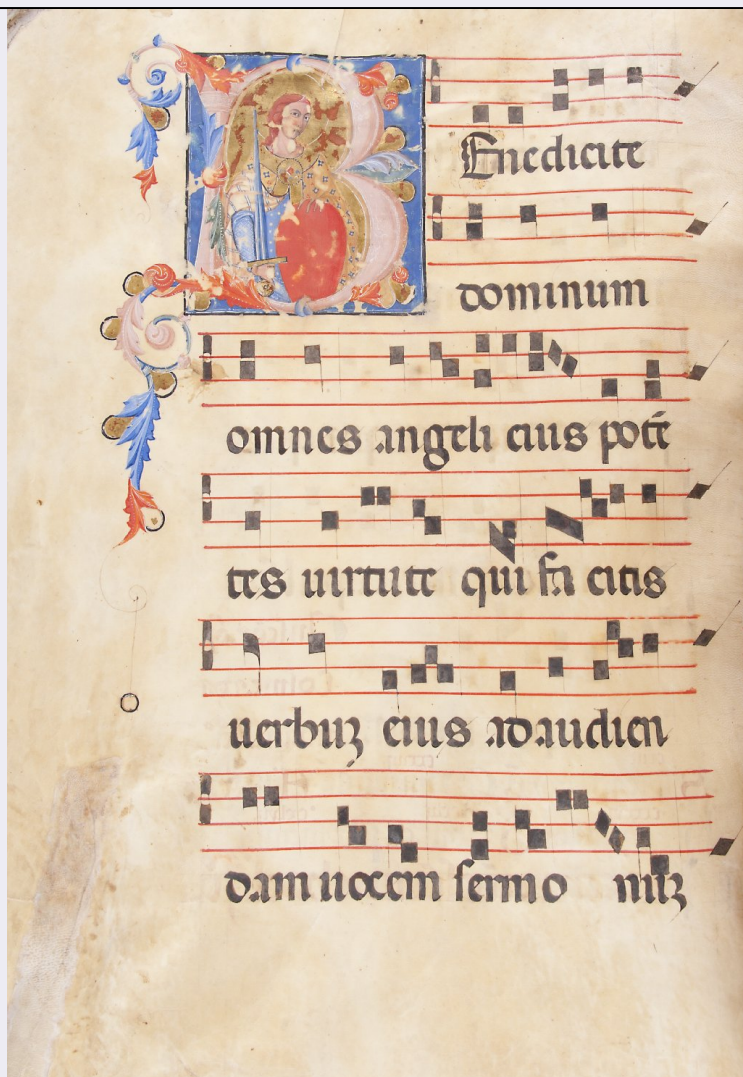 BEnedicite
dominum
omnes angeli eius potē
tes uirtute qui fa citis
uerbuȝ eius ad audien
dam uocem sermo nuȝ